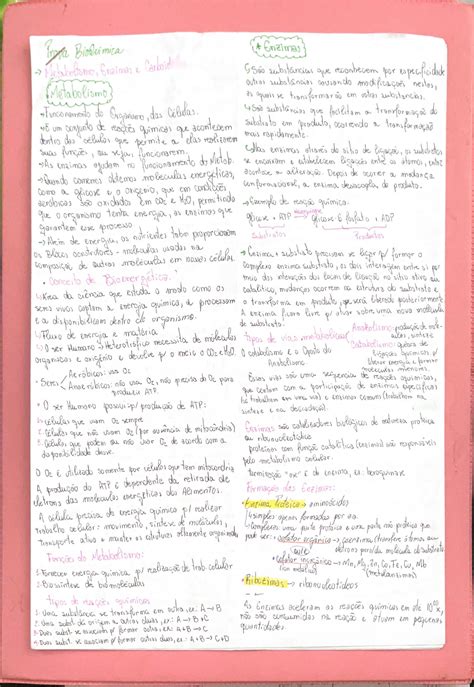 Prova Bioquímica
→ Metabolismo, Enzimas e Carboi
Metabolismo
→ Funcionamento do Organismo, das Células.
→ É um conjunto de reações químicas que acontecem
dentro das células que permite a elas realizarem
suas funções, ou seja, funcionarem.
→ As enzimas ajudam no funcionamento do Metab.
→ Quando comemos obtemos moléculas energéticas,
como a glicose e o oxigênio, que em condições
aeróbicas são oxidadas em CO2 e H2O, permitindo
que o organismo tenha energia, as enzimas que
garantem esse processo.
→ Além de energia, os nutrientes tabe proporcionam
os Blocos construtores - moléculas usadas na
composição de outras moléculas em nossas células.
Conceito de Bioenergética:
Área da ciência que estuda o modo como os
seres vivos captam a energia química, a processam
e a disponibilizam dentro do organismo.
Fluxo de energia e matéria
O ser Humano Heterotrófico necessita de moléculas
orgânicas e oxigênio e devolve p/ o meio o CO2 e H2O.
• Seres
Aeróbicos: usa O2
Anaeróbicos: não usa O2, não precisa do O2 para
produzir ATP
• O ser Humano possui p/ produção de ATP:
Células que usam O2 sempre
Células que não usam O2 (por ausência de mitocôndria)
Células que podem ou não usar O2 de acordo com a
disponibilidade desse.
O O2 é utilizado somente por células que tem mitocôndria
A produção do ATP é dependente da retirada de
elétrons das moléculas energéticas dos Alimentos.
A célula precisa de energia química p/ realizar
trabalho celular: movimento, síntese de moléculas,
transporte ativo e manter as estruturas altamente organizadas
Função do Metabolismo:
Fornecer energia química p/ realização de trab. celular
Biossíntese de biomoléculas
Tipos de reações químicas
1. Uma substância se transforma em outra, ex.: A → B
2. Uma subst. dá origem a outras duas, ex.: A → B + C
3. Duas subst. se associam p/ formar outra, ex.: A + B → C
4. Duas subst. se associam p/ formar outras duas, ex.: A + B → C + D
* Enzimas
São substâncias que reconhecem por especificidade
outras substâncias causando modificações nestas,
as quais se transformarão em outras substâncias.
São substâncias que facilitam a transformação do
substrato em produto, ocorrendo a transformação
mais rapidamente.
Nas enzimas através do sítio de ligação, os substratos
se encaixam e estabelecem ligações entre os átomos, entre
acontece a alteração. Depois de ocorrer a mudança
conformacional, a enzima desacopla do produto.
→ Exemplo de reação química:
glicose + ATP → glicose 6 fosfato + ADP
Substratos Produtos
→ Enzima + substrato precisam se ligar p/ formar o
complexo enzima substrato, os dois interagem entre si por
meio das interações dos locais de ligação, no sítio ativo ou
catalítico, mudanças ocorrem na estrutura do substrato e
o transforma em produto, que será liberado posteriormente.
A enzima fica livre p/ atuar sobre uma nova molécula
de substrato.
Tipos de vias metabólicas
Anabolismo: produção de molé-
culas, síntese
Catabolismo: quebra de
ligações químicas p/
liberar energia e formar
moléculas menores.
O catabolismo é o oposto do
Anabolismo
Essas vias são uma sequência de reações químicas,
que contam com a participação de enzimas específicas
(As trabalham em uma via) e enzimas comuns (trabalham na
síntese e na degradação).
Enzimas são catalisadores biológicos de natureza proteica
ou ribonucleotídica
proteínas com função catalítica (enzimas) são responsáveis
pelo metabolismo celular.
terminação "ase" é de enzima, ex.: hexoquinase
Formação das Enzimas:
• Enzima Proteica → aminoácidos
simples: apenas formados por aa.
Complexa: uma parte proteica e uma parte não proteica que
pode ser: cofator orgânico → coenzima (transfere átomos ou
elétrons para/da molécula de substrato)
Cofator inorgânico → Mn, Mg, Zn, Co, Fe, Cu, Mb
(íon metálico)
• Ribozimas → ribonucleotídeos
As enzimas aceleram as reações químicas em até
não são consumidas na reação e atuam em pequenas
quantidades.